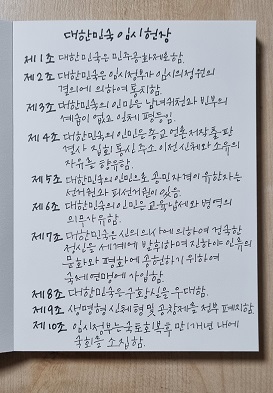 대한민국 임시헌장
제1조 대한민국은 민주공화제로 함.
제2조 대한민국은 임시정부가 임시의정원의
결의에 의하여 통치함.
제3조 대한민국의 인민은 남녀귀천과 빈부의
계급이 없고 일체 평등임.
제4조 대한민국의 인민은 종교 언론 저작 출판
결사 집회 통신 주소 이전 신체와 소유의
자유를 향유함.
제5조 대한민국의 인민으로 공민자격이 유한 자는
선거권과 피선거권이 있음.
제6조 대한민국의 인민은 교육 납세와 병역의
의무가 유함.
제7조 대한민국은 신의 의사에 의하여 건국한
정신을 세계에 발휘하며 진하야 인류의
문화와 평화에 공헌하기 위하여
국제연맹에 가입함.
제8조 대한민국은 구황실을 우대함.
제9조 생명형 신체형 및 공창제를 전부 폐지함.
제10조 임시정부는 국토회복 후 만 1개년 내에
국회를 소집함.